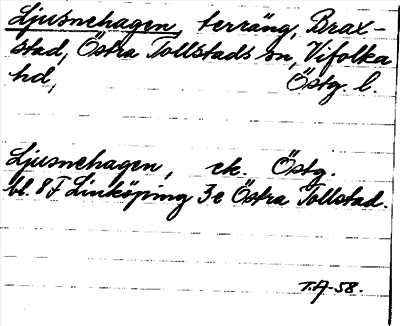 Ljusnehagen, terräng, Brax-
stad, Östra Tollstads sn, Vifolka
hd, Östg. l.
Ljusnehagen, ek. Östg.
bl. 8 F Linköping 3e Östra Tollstad.
T.A-58.